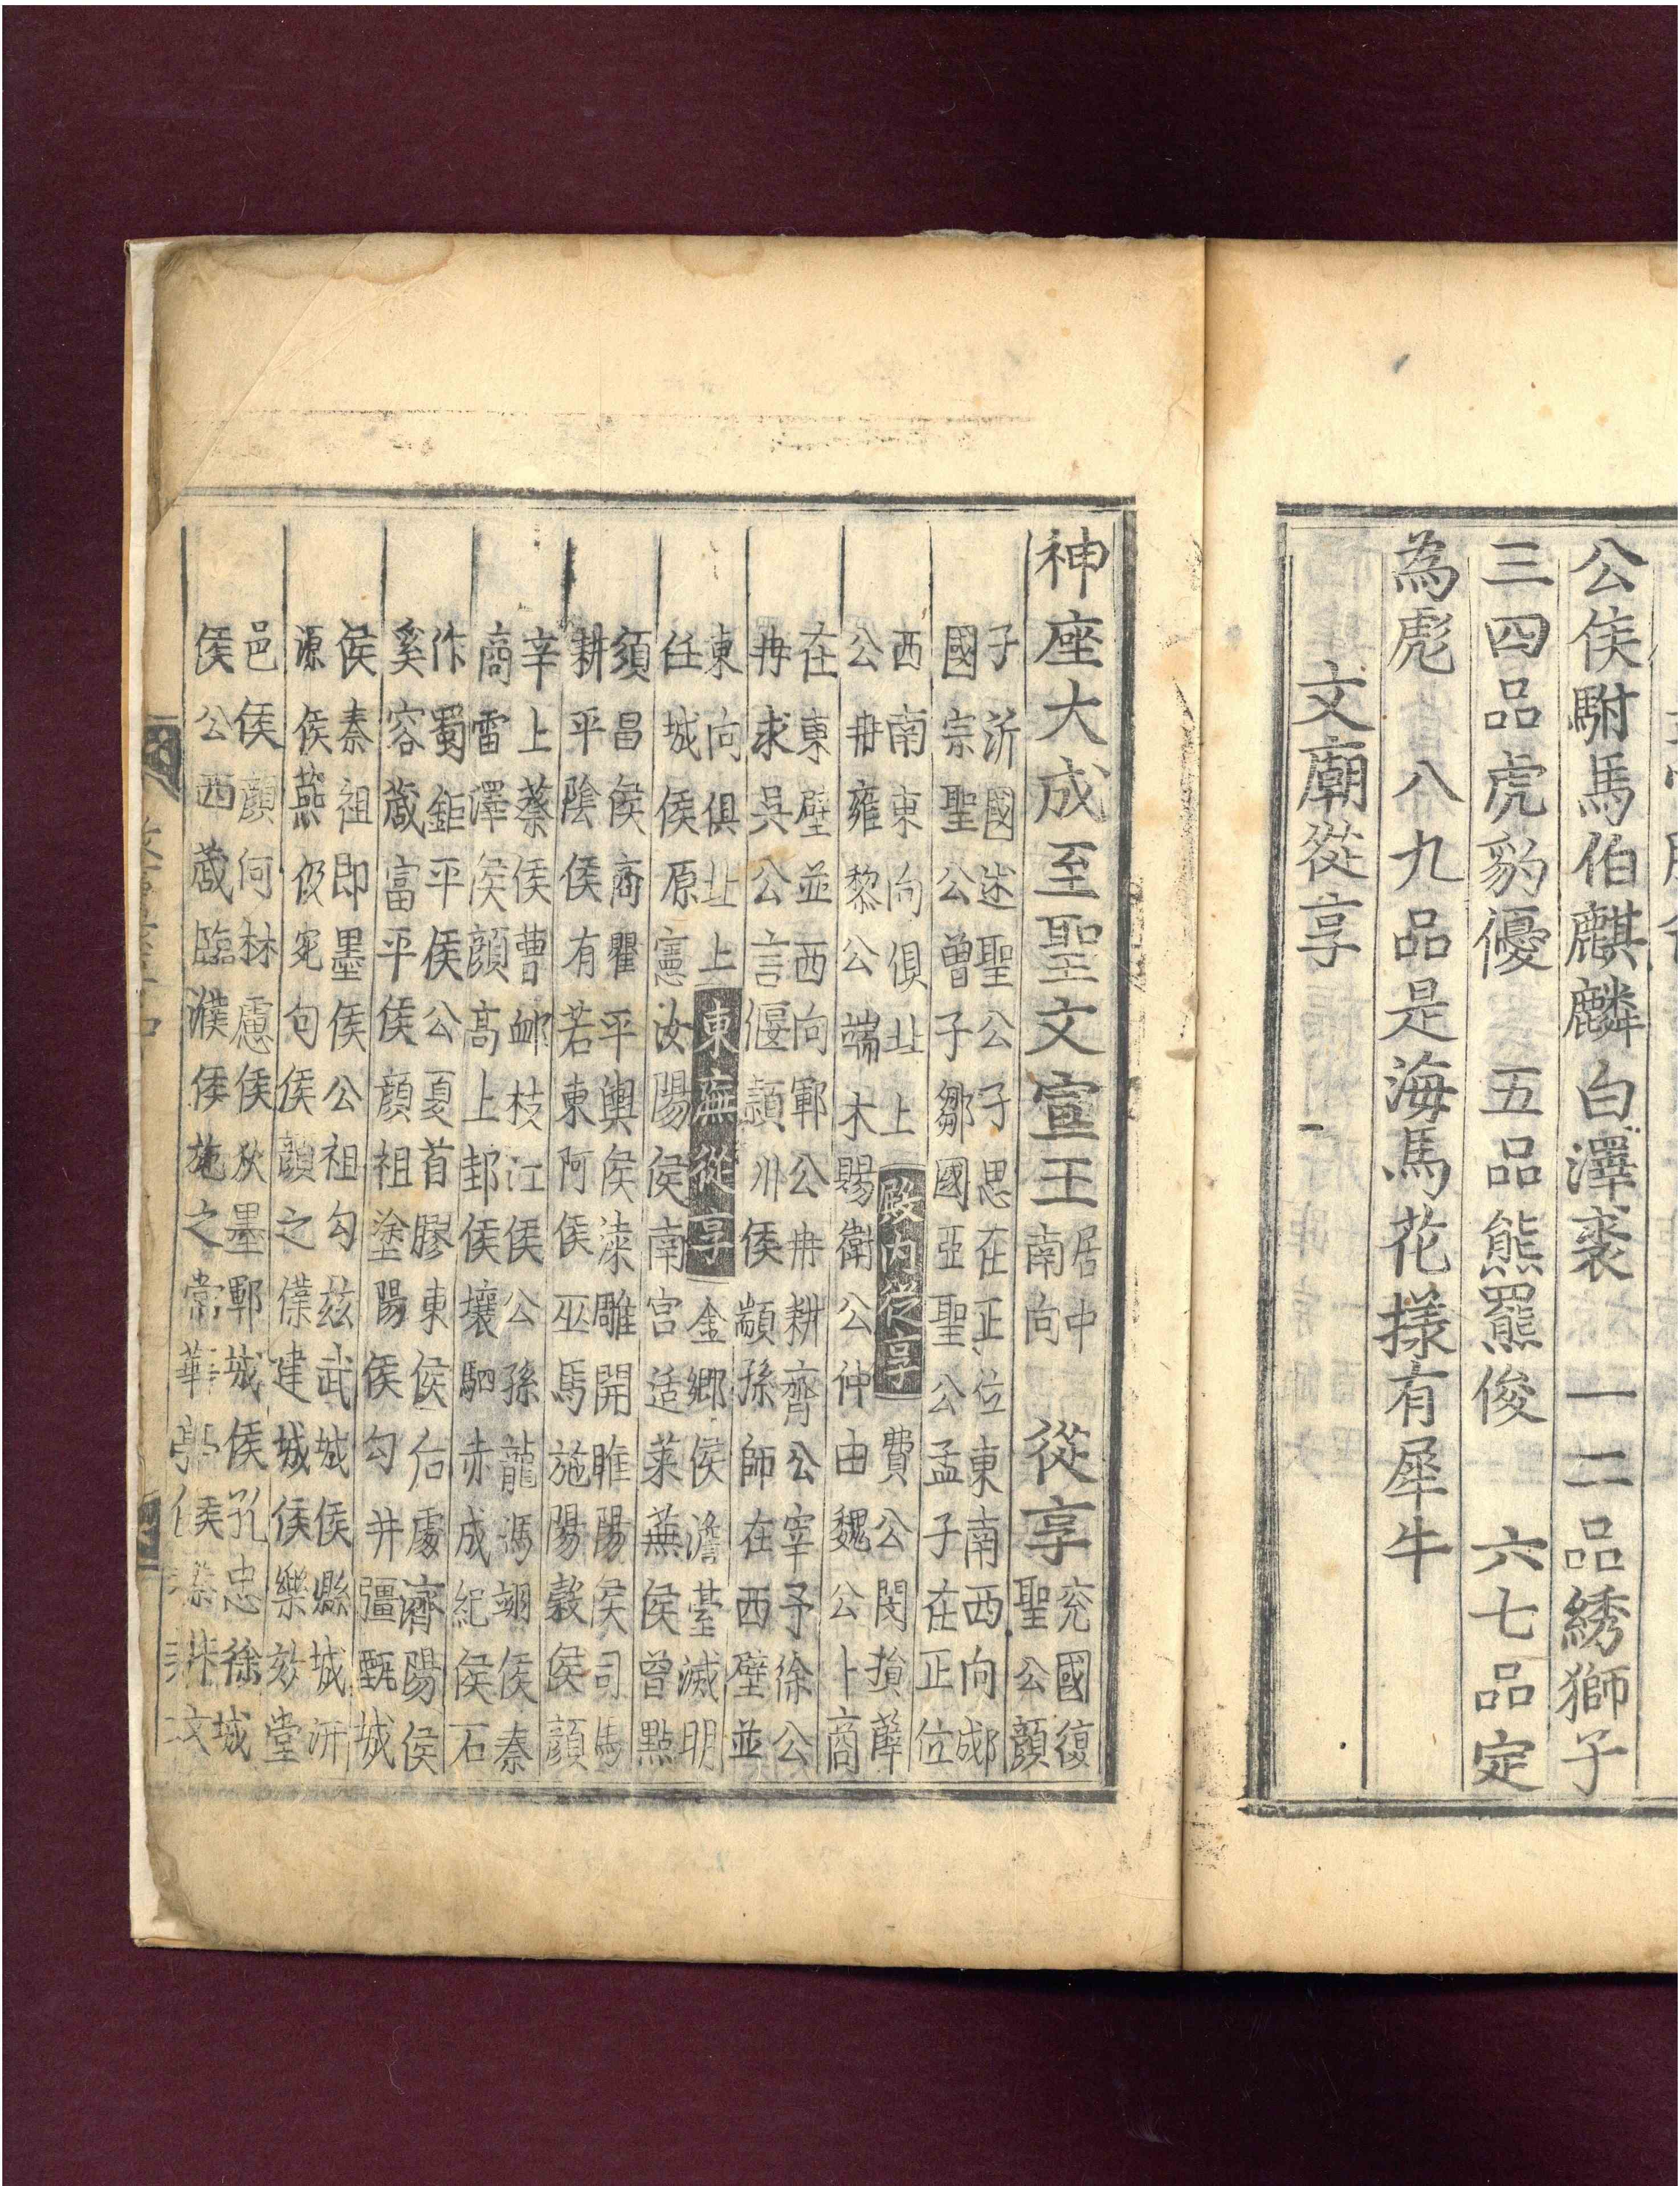 公侯駙馬伯麒麟白澤裘一二品綉獅子
三四品虎豹優五品熊羆俊六七品定
為彪八九品是海馬花樣有犀牛
文廟從享
神座大成至聖文宣王
居中
南向
從享
兖國復
聖公顏
子沂國述聖公子思在正位東南西向郕
國宗聖公曾子鄒國亞聖公孟子在正位
西南東向俱北上
公冉雍黎公端木賜衛公仲由魏公卜商
殿內從享
費公閔損薛
在東壁並西向鄆公冉耕齊公宰予徐公
冉求吳公言偃頴川侯顓孫師在西壁並
東向俱北上
東廡從享
金鄉侯澹臺滅明
任城侯原憲汝陽侯南宮适萊蕪侯曾點
須昌侯商瞿平輿侯漆雕開睢陽侯司馬
耕平陰侯有若東阿侯巫馬施陽糓侯顏
辛上蔡侯曹卹枝江侯公孫龍馮翊侯秦
商雷澤侯顔高上邽侯壤駟赤成紀侯石
作蜀鉅平侯公夏首膠東侯后處濟陽侯
奚容蒧富平侯顔祖塗陽侯勾井彊甄城
侯秦祖即墨侯公祖勾兹武城侯縣城汧
源侯燕伋宛句侯顔之僕建城侯樂欬堂
邑侯顔何林慮侯狄墨鄆城侯孔忠徐城
侯公西蒧臨濮侯施之常華亭侯秦